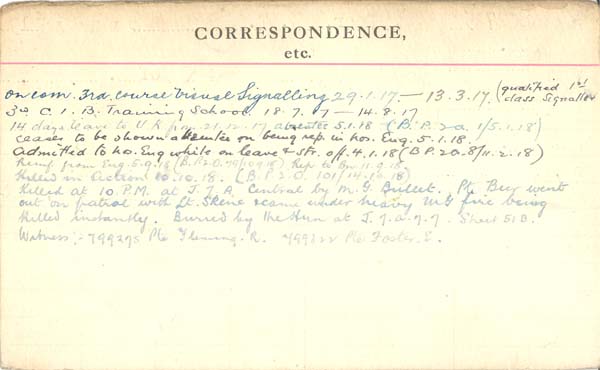 CORRESPONDENCE,
etc.
on com. 3rd. course Visual Signalling 29.1.17. — 13.3.17. (qualified 1st class Signaller
3rd C. I. B. Training School. 18.7.17 — 14.8.17
14 days leave to U.K. from 21.12.17 absentee 5.1.18 (B.P. 2a. 1/5.1.18)
ceases to be shown absentee on being rep. in hos. Eng. 5.1.18.
admitted to ho. Eng while on leave & Str. off. 4.1.18 (B.P. 2.0. 8/11.2.18)
from Eng. 5.9.18
Killed in action 10.10.18. (B.P. 2.0. 101/14.10.18)
Killed at 10 P.M. at J.7.A. Central by M.G. Bullet. Pte went
out on patrol with Lt. Skene & came under heavy MG fire being
killed instantly. Buried by the Hun at J.7.a.7.7. Sheet 51B.
Witness:- 799275 Pte Fleming. R. Pte. Foster. E.